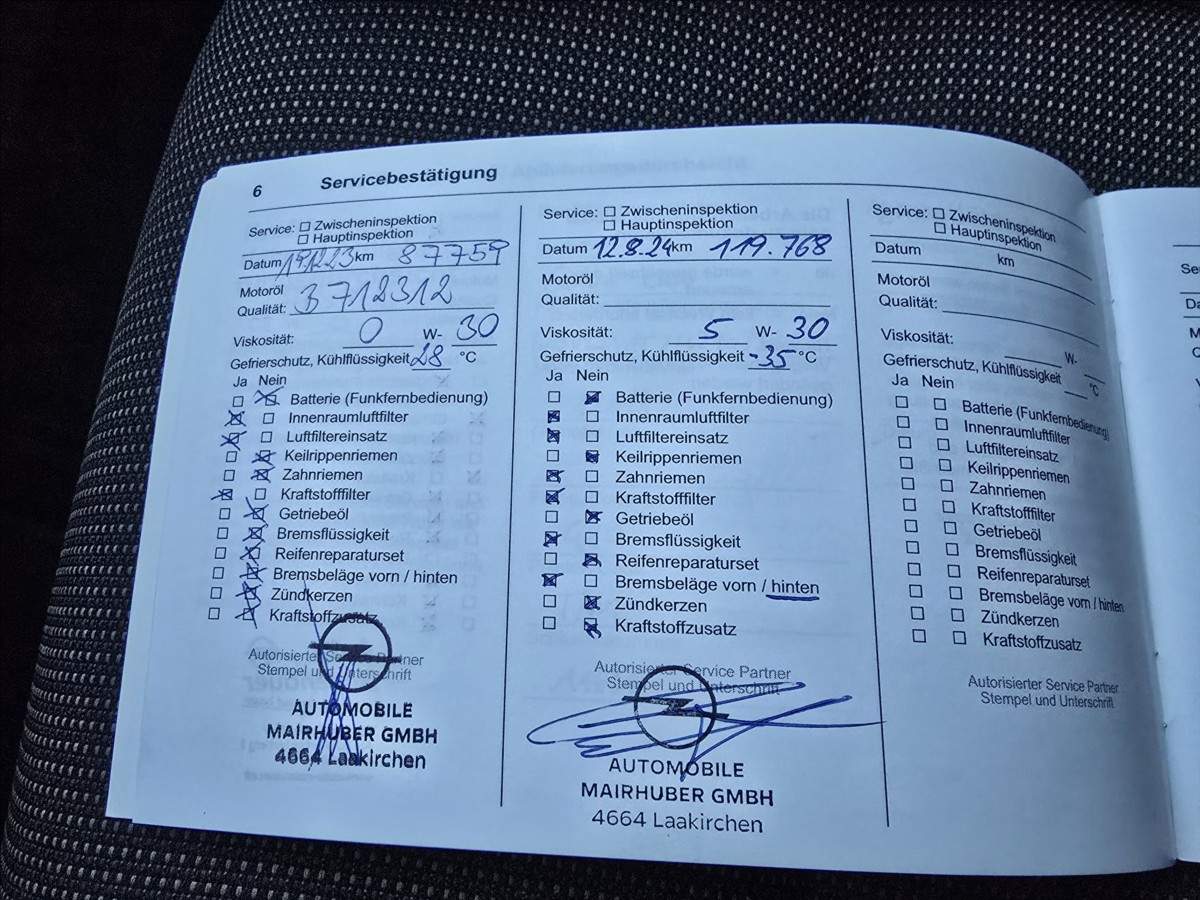 6 Servicebestätigung
Service: ☐ Zwischeninspektion
☐ Hauptinspektion
Datum 19.12.23 km 87759
Motoröl
Qualität: B712312
Viskosität: 0 W- 30
Gefrierschutz, Kühlflüssigkeit -28 °C
Ja Nein
☐ ☒ Batterie (Funkfernbedienung)
☒ ☐ Innenraumluftfilter
☒ ☐ Luftfiltereinsatz
☐ ☒ Keilrippenriemen
☐ ☒ Zahnriemen
☒ ☐ Kraftstofffilter
☐ ☒ Getriebeöl
☐ ☒ Bremsflüssigkeit
☐ ☒ Reifenreparaturset
☐ ☒ Bremsbeläge vorn / hinten
☐ ☒ Zündkerzen
☐ ☒ Kraftstoffzusatz
Autorisierter Service Partner
Stempel und Unterschrift
AUTOMOBILE
MAIRHUBER GMBH
4664 Laakirchen
Service: ☐ Zwischeninspektion
☐ Hauptinspektion
Datum 12.8.24 km 119.768
Motoröl
Qualität:
Viskosität: 5 W- 30
Gefrierschutz, Kühlflüssigkeit -35 °C
Ja Nein
☐ ☒ Batterie (Funkfernbedienung)
☒ ☐ Innenraumluftfilter
☒ ☐ Luftfiltereinsatz
☐ ☒ Keilrippenriemen
☒ ☐ Zahnriemen
☒ ☐ Kraftstofffilter
☐ ☒ Getriebeöl
☒ ☐ Bremsflüssigkeit
☐ ☒ Reifenreparaturset
☒ ☐ Bremsbeläge vorn / hinten
☐ ☒ Zündkerzen
☐ ☒ Kraftstoffzusatz
Autorisierter Service Partner
Stempel und Unterschrift
AUTOMOBILE
MAIRHUBER GMBH
4664 Laakirchen
Service: ☐ Zwischeninspektion
☐ Hauptinspektion
Datum km
Motoröl
Qualität:
Viskosität: W-
Gefrierschutz, Kühlflüssigkeit °C
Ja Nein
☐ ☐ Batterie (Funkfernbedienung)
☐ ☐ Innenraumluftfilter
☐ ☐ Luftfiltereinsatz
☐ ☐ Keilrippenriemen
☐ ☐ Zahnriemen
☐ ☐ Kraftstofffilter
☐ ☐ Getriebeöl
☐ ☐ Bremsflüssigkeit
☐ ☐ Reifenreparaturset
☐ ☐ Bremsbeläge vorn / hinten
☐ ☐ Zündkerzen
☐ ☐ Kraftstoffzusatz
Autorisierter Service Partner
Stempel und Unterschrift